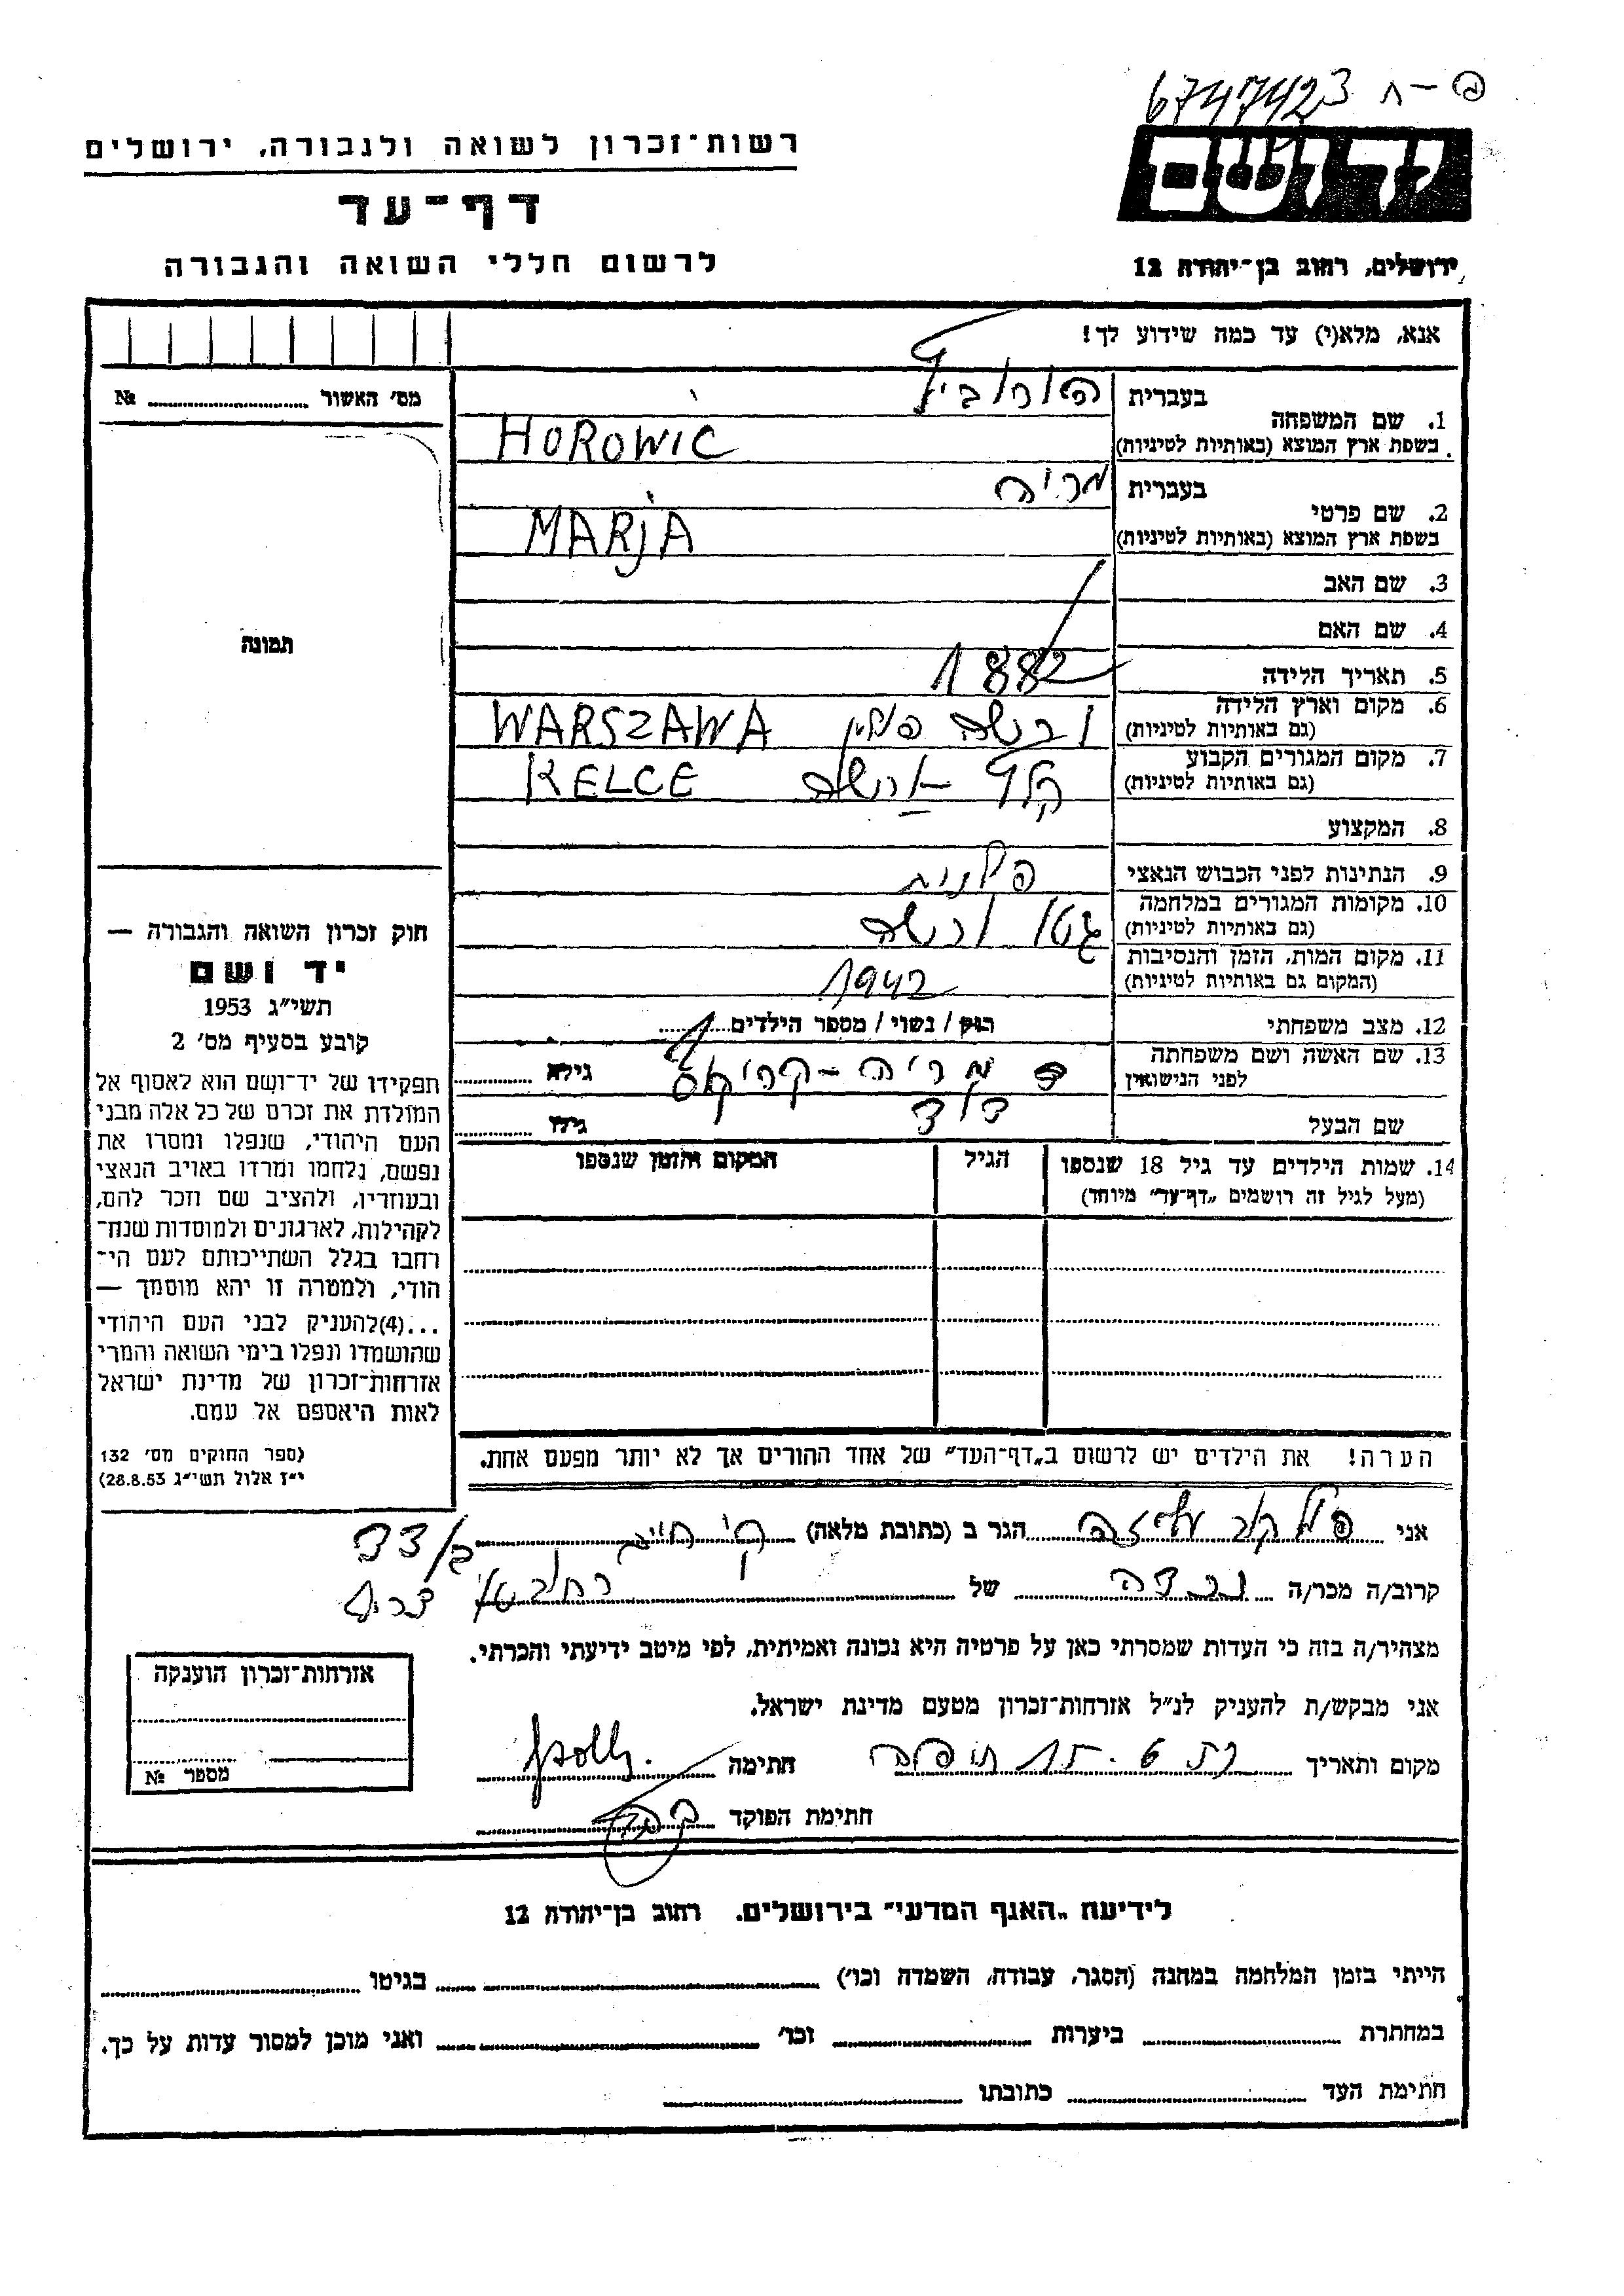 6747423 ח-פ
רשות־זכרון לשואה ולגבורה, ירושלים
יד ושם
דף־עד
לרשום חללי השואה והגבורה
ירושלים, רחוב בן־יהודה 12
אנא, מלא(י) עד כמה שידוע לך!
מס' האשור № 
1. שם המשפחה בעברית הורוביץ
בשפת ארץ המוצא (באותיות לטיניות) HOROWIC
2. שם פרטי בעברית מריה
בשפת ארץ המוצא (באותיות לטיניות) MARJA
3. שם האב
4. שם האם
תמונה
5. תאריך הלידה 1882
6. מקום וארץ הלידה (גם באותיות לטיניות) ורשה פולין WARSZAWA
7. מקום המגורים הקבוע (גם באותיות לטיניות) KELCE
8. המקצוע
9. הנתינות לפני הכבוש הנאצי פולנית
10. מקומות המגורים במלחמה (גם באותיות לטיניות) גטו ורשה
11. מקום המות, הזמן והנסיבות (המקום גם באותיות לטיניות) 1942
12. מצב משפחתי רווק / נשוי / מספר הילדים
13. שם האשה ושם משפחתה לפני הנישואין מריה גילה
שם הבעל דוד גילו
14. שמות הילדים עד גיל 18 שנספו הגיל המקום והזמן שנספו
(מעל לגיל זה רושמים "דף־עד" מיוחד)
חוק זכרון השואה והגבורה —
יד ושם
תשי"ג 1953
קובע בסעיף מס' 2
תפקידו של יד־ושם הוא לאסוף אל
המולדת את זכרם של כל אלה מבני
העם היהודי, שנפלו ומסרו את
נפשם, נלחמו ומרדו באויב הנאצי
ובעוזריו, ולהציב שם וזכר להם,
לקהילות, לארגונים ולמוסדות שנח־
רחבו בגלל השתייכותם לעם הי־
הודי, ולמטרה זו יהא מוסמך —
...(4)להעניק לבני העם היהודי
שהושמדו ונפלו בימי השואה והמרי
אזרחות־זכרון של מדינת ישראל
לאות היאספם אל עמם.
(ספר החוקים מס' 132
י"ז אלול תשי"ג 28.8.53)
הערה! את הילדים יש לרשום ב"דף־העד" של אחד ההורים אך לא יותר מפעם אחת.
אני עליזה הגר ב (כתובת מלאה) ק' חיים
קרוב/ה מכר/ה נכדה של
מצהיר/ה בזה כי העדות שמסרתי כאן על פרטיה היא נכונה ואמיתית, לפי מיטב ידיעתי והכרתי.
אני מבקש/ת להעניק לנ"ל אזרחות־זכרון מטעם מדינת ישראל.
מקום ותאריך חתימה
חתימת הפוקד
אזרחות־זכרון הוענקה
מספר №
לידיעת "האגף המדעי" בירושלים. רחוב בן־יהודה 12
הייתי בזמן המלחמה במחנה (הסגר, עבודה, השמדה וכו') בגיטו
במחתרת ביערות וכו' ואני מוכן למסור עדות על כך.
חתימת העד כתובתו